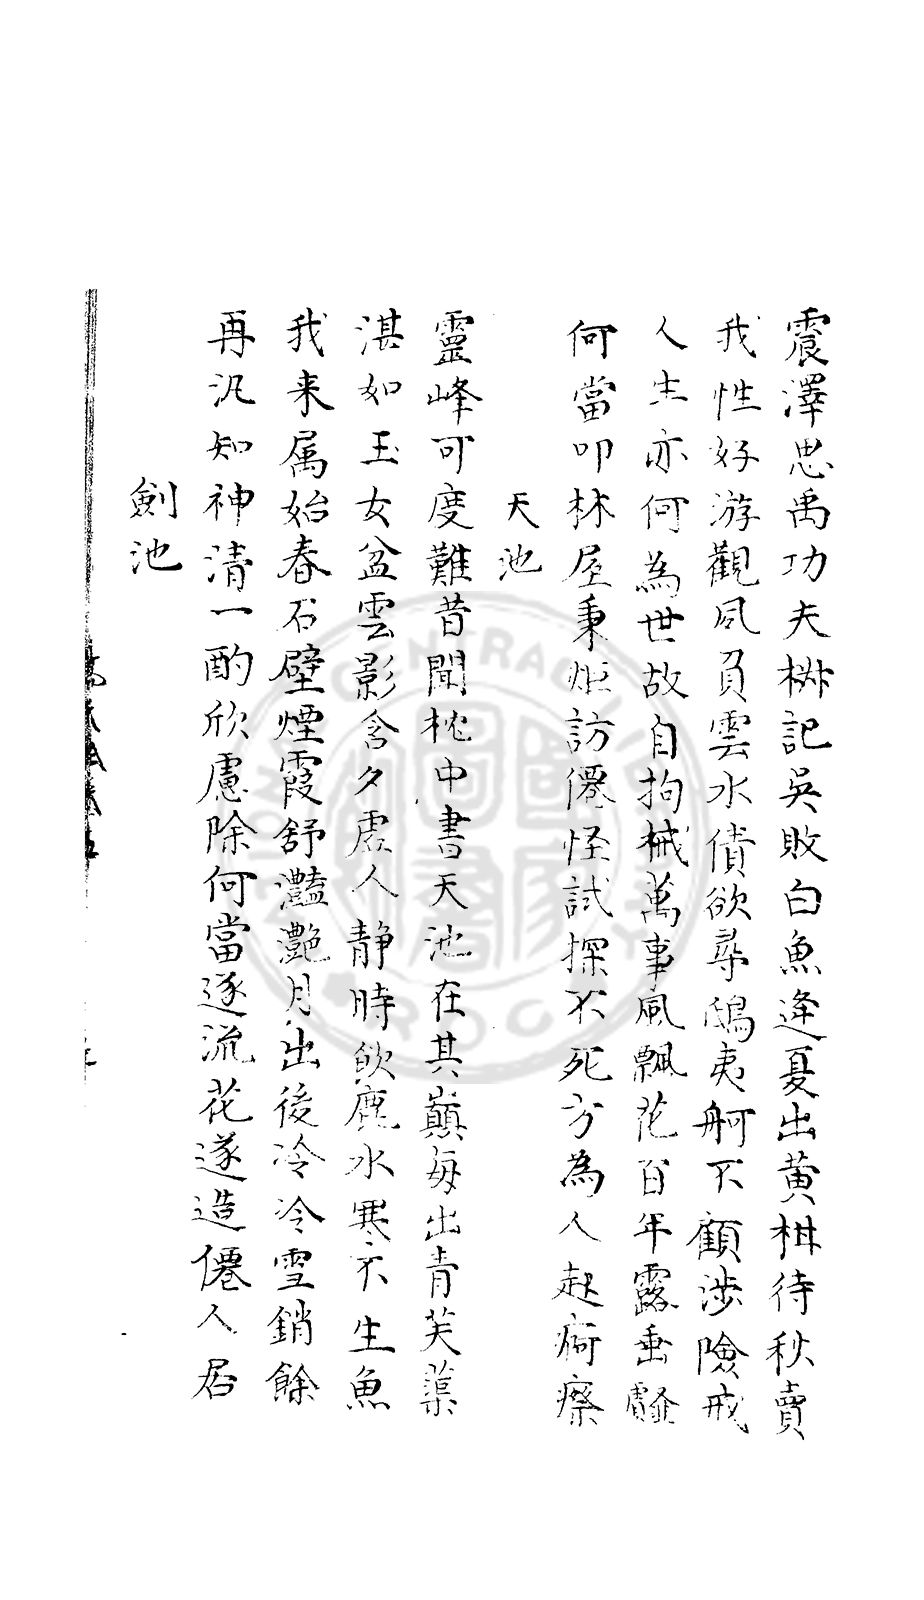 震澤思禹功夫椒記吳敗白魚逢夏出黃柑待秋賣
我性好游觀夙負雲水債欲尋鴟夷舸不顧涉險戒
人生亦何為世故自拘械萬事風飄花百年露垂薤
何當叩林屋秉炬訪僊怪試探不死方為人起痾瘵
天池
靈峰可度難昔聞枕中書天池在其巔每出青芙蕖
湛如玉女盆雲影含夕虛人靜時飲鹿水寒不生魚
我来属始春石壁煙霞舒灩灩月出後冷冷雪銷餘
再汎知神清一酌欣慮除何當逐流花遂造僊人居
劍池
NATIONAL CENTRAL LIBRARY
R.O.C